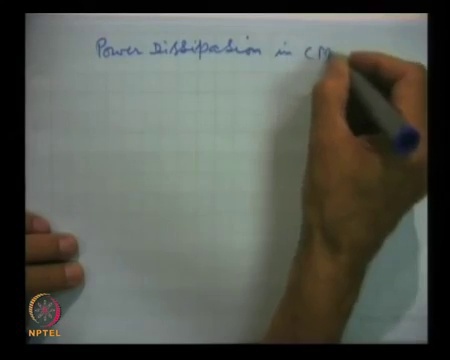 Power Dissipasion in CM
NPTEL